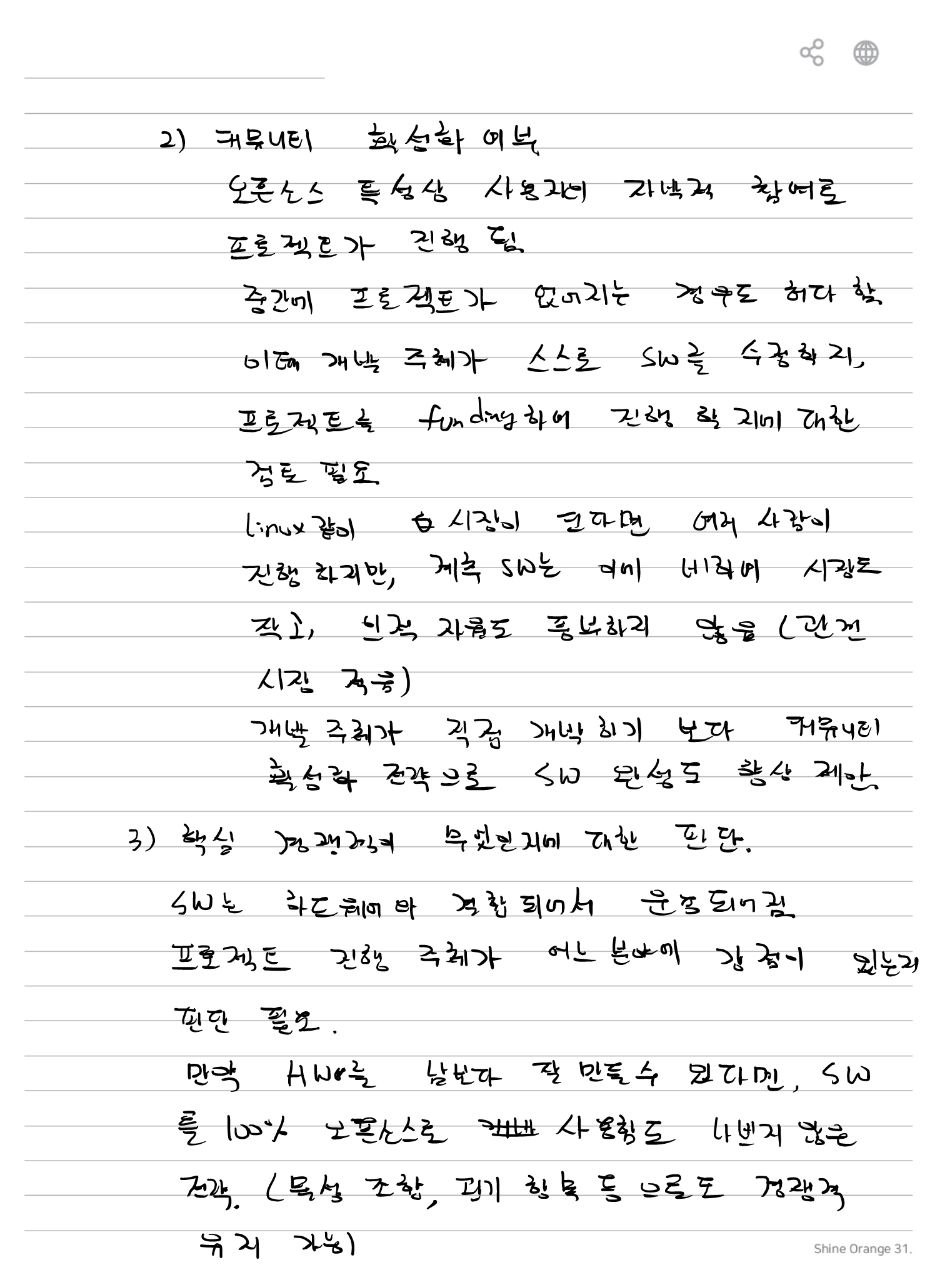 2) 커뮤니티 활성화 여부
오픈소스 특성상 사용자의 자발적 참여로
프로젝트가 진행 됨
중간에 프로젝트가 없어지는 경우도 허다 함
이때 개발 주체가 스스로 SW를 수정할 지,
프로젝트를 funding하여 진행 할 지에 대한
검토 필요
linux 같이 시장이 크다면 여러 사람이
진행 하지만, 계측 SW는 이에 비하여 시장도
작고, 인적 자원도 풍부하지 않음 (관련
시장 적음)
개발 주체가 직접 개발 하기 보다 커뮤니티
활성화 전략으로 SW 완성도 향상 제안
3) 핵심 경쟁력이 무엇인지에 대한 판단.
SW는 하드웨어와 결합 되어서 운용되어짐
프로젝트 진행 주체가 어느 분야에 강점이 있는지
판단 필요.
만약 HW를 남보다 잘 만들 수 있다면, SW
를 100% 오픈소스로 사용해도 나쁘지 않은
전략. (특성 조합, 기 항목 등 으로도 경쟁력
유지 가능)
Shine Orange 31.